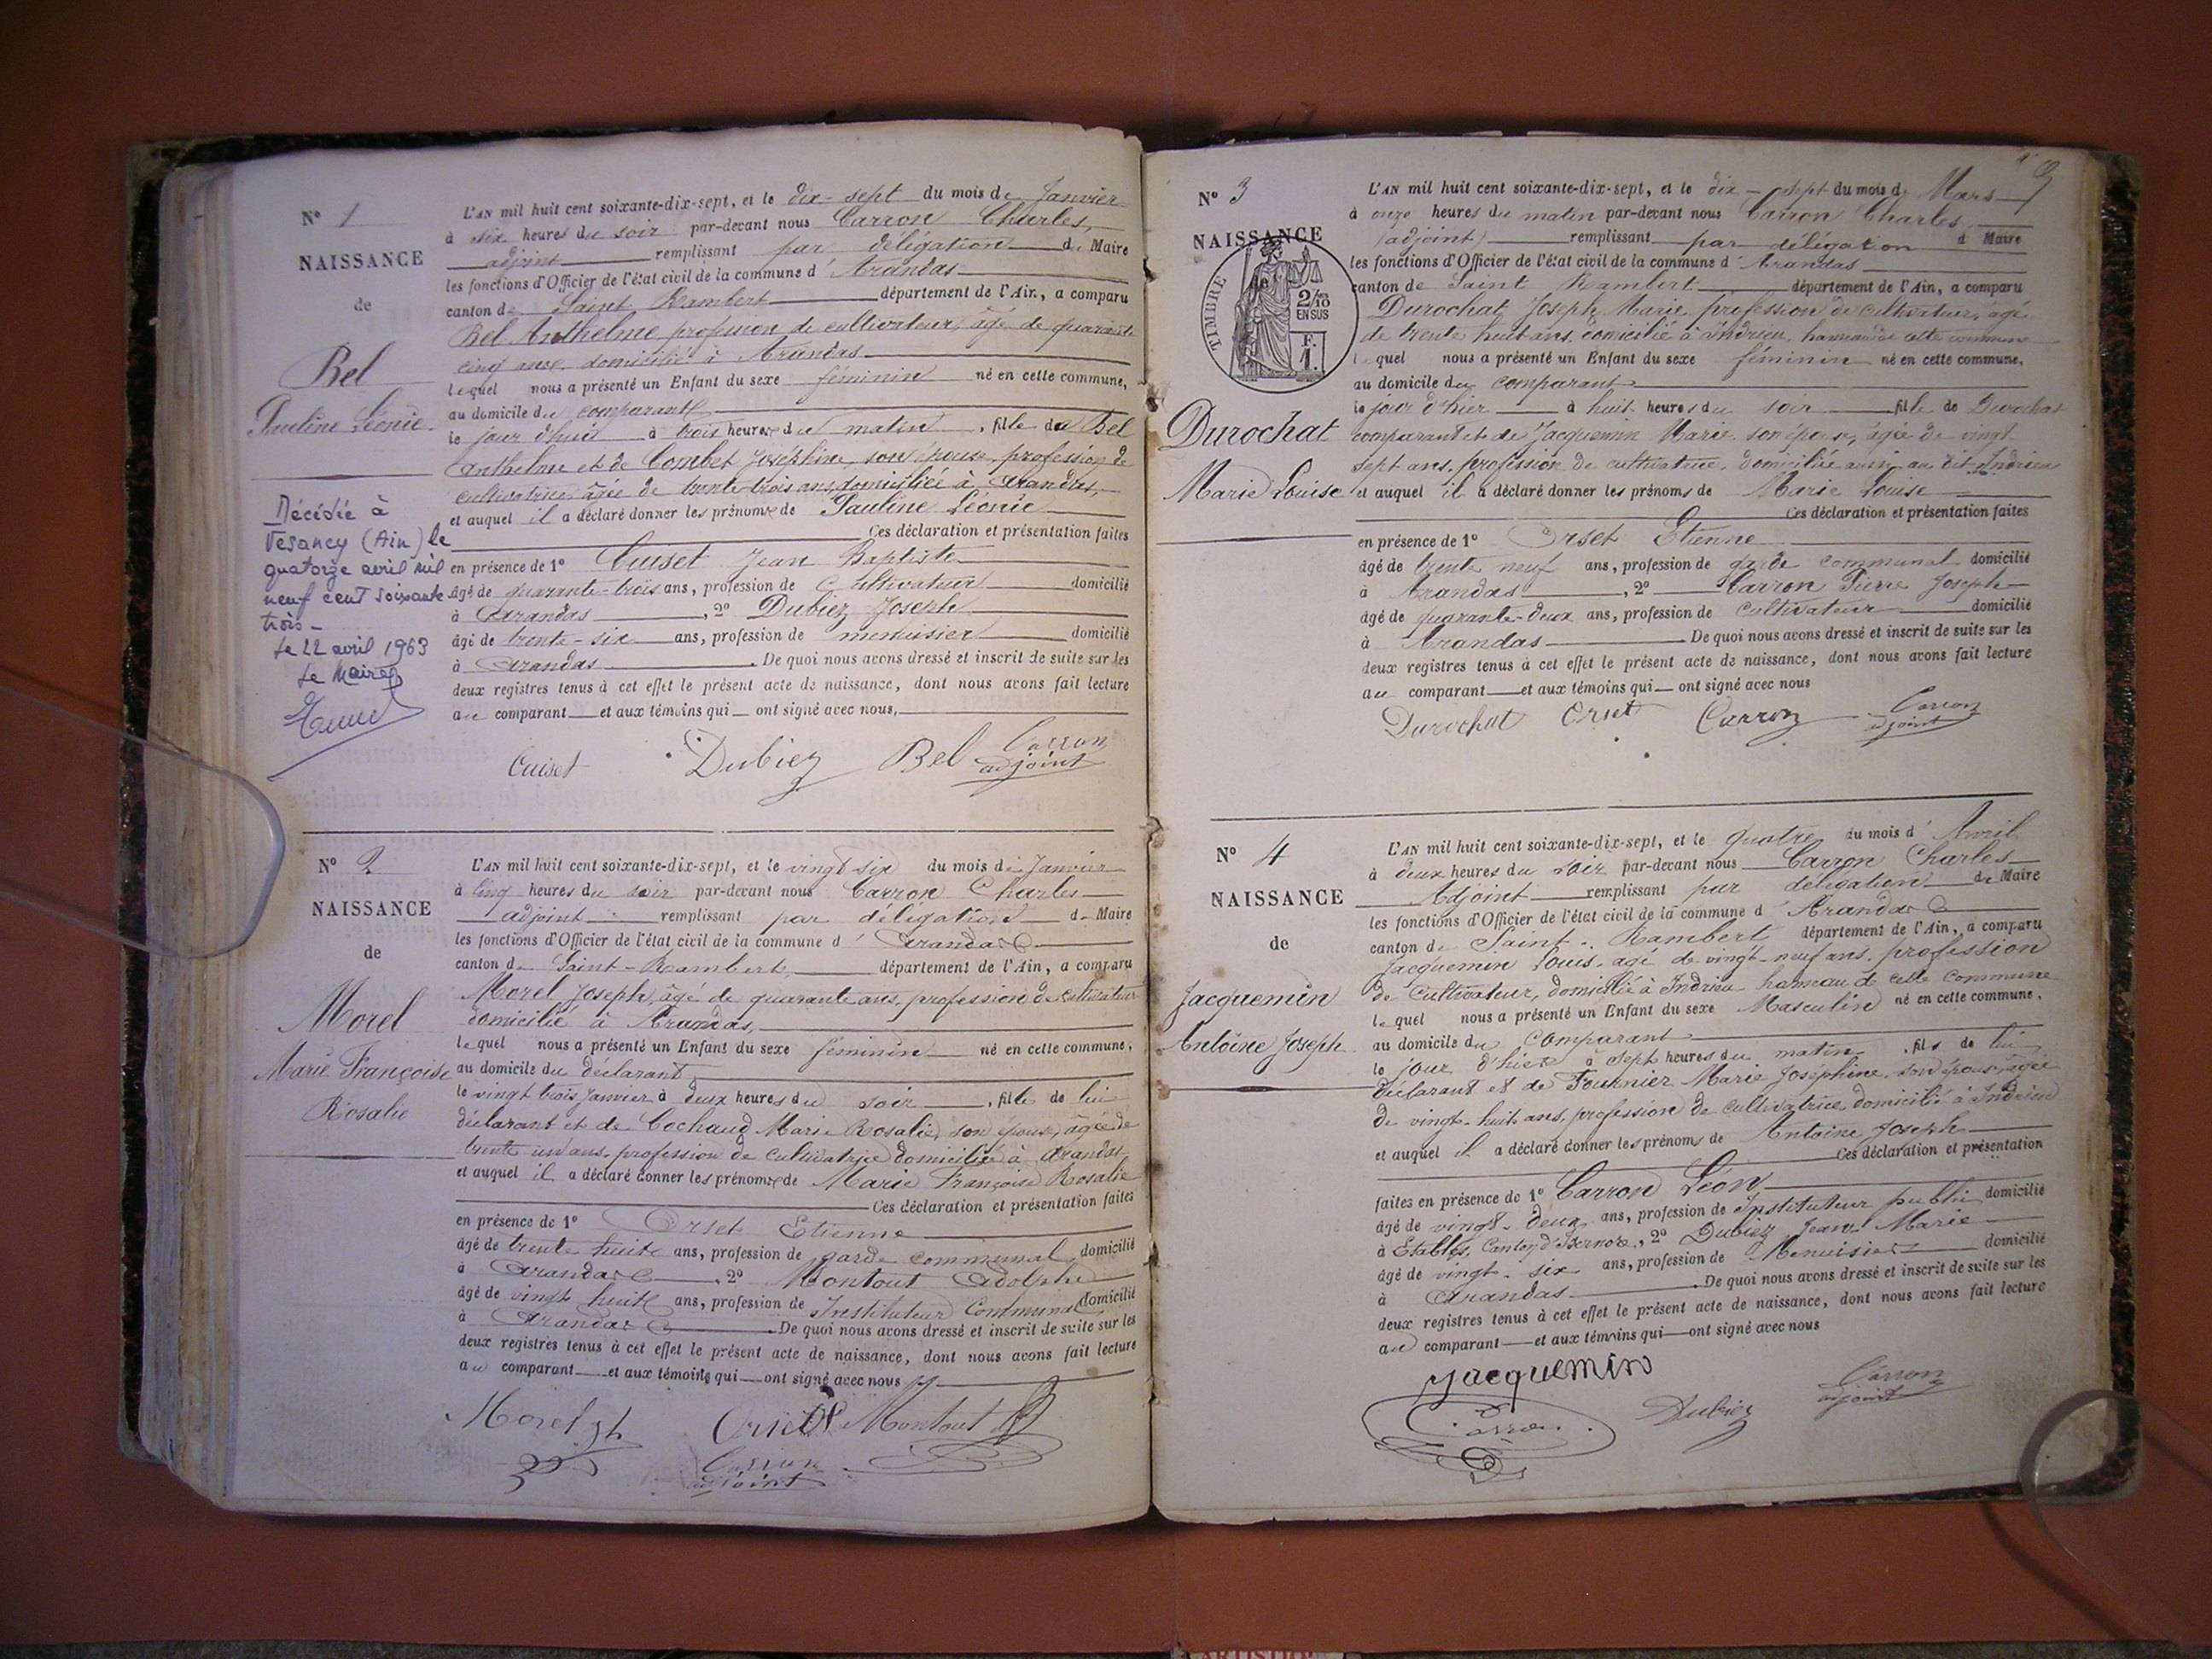 N° 1
NAISSANCE
de
Bel
Pauline Léonie
Décédée à
Vesancy (Ain) le
quatorze avril mil
neuf cent soixante
trois -
Le 22 avril 1963
Le Maire
L'AN mil huit cent soixante-dix-sept, et le dix-sept du mois de Janvier
à six heures du soir par-devant nous Carron Charles,
adjoint remplissant par délégation du Maire
les fonctions d'Officier de l'état civil de la commune d'Arandas
canton de Saint Rambert département de l'Ain, a comparu
Bel Anthelme, profession de cultivateur, âgé de quarante
cinq ans, domicilié à Arandas
lequel nous a présenté un Enfant du sexe féminin né en cette commune,
au domicile du comparant
le jour d'hui à trois heures du matin, fille de Bel
Anthelme et de Combet Joséphine, son épouse, profession de
cultivatrice, âgée de trente-trois ans, domiciliée à Arandas,
et auquel il a déclaré donner les prénoms de Pauline Léonie
Ces déclaration et présentation faites
en présence de 1° Cuiset Jean Baptiste
âgé de quarante-trois ans, profession de Cultivateur domicilié
à Arandas, 2° Dubiez Joseph
âgé de trente-six ans, profession de menuisier domicilié
à Arandas. De quoi nous avons dressé et inscrit de suite sur les
deux registres tenus à cet effet le présent acte de naissance, dont nous avons fait lecture
au comparant et aux témoins qui ont signé avec nous,
Cuiset Dubiez Bel Carron
adjoint
N° 2
NAISSANCE
de
Morel
Marie Françoise
Rosalie
L'AN mil huit cent soixante-dix-sept, et le vingt six du mois de Janvier
à cinq heures du soir par-devant nous Carron Charles
adjoint remplissant par délégation d Maire
les fonctions d'Officier de l'état civil de la commune d'Arandas
canton de Saint-Rambert département de l'Ain, a comparu
Morel Joseph, âgé de quarante ans, profession de cultivateur
domicilié à Arandas,
lequel nous a présenté un Enfant du sexe féminin né en cette commune,
au domicile du déclarant
le vingt trois Janvier à deux heures du soir, fille de lui
déclarant et de Cochaud Marie Rosalie, son épouse, âgée de
trente un ans, profession de cultivatrice domiciliée à Arandas
et auquel il a déclaré donner les prénoms de Marie Françoise Rosalie
Ces déclaration et présentation faites
en présence de 1° Orset Etienne
âgé de trente huit ans, profession de garde communal domicilié
à Arandas, 2° Montout Adolphe
âgé de vingt huit ans, profession de Instituteur Communal domicilié
à Arandas. De quoi nous avons dressé et inscrit de suite sur les
deux registres tenus à cet effet le présent acte de naissance, dont nous avons fait lecture
au comparant et aux témoins qui ont signé avec nous
Morel jh Orset Montout
Carron
adjoint
N° 3
NAISSANCE
de
TIMBRE
2/10
EN SUS
F.
1.
Durochat
Marie Louise
L'AN mil huit cent soixante-dix-sept, et le dix-sept du mois de Mars
à onze heures du matin par-devant nous Carron Charles,
(adjoint) remplissant par délégation d Maire
les fonctions d'Officier de l'état civil de la commune d'Arandas
canton de Saint Rambert département de l'Ain, a comparu
Durochat Joseph Marie, profession de cultivateur, âgé
de trente huit ans, domicilié à Indrieu, hameau de cette commune
lequel nous a présenté un Enfant du sexe féminin né en cette commune,
au domicile du comparant
le jour d'hier à huit heures du soir fille de Durochat
comparant et de Jacquemin Marie son épouse, âgée de vingt
sept ans, profession de cultivatrice, domiciliée aussi au dit Indrieu
et auquel il a déclaré donner les prénoms de Marie Louise
Ces déclaration et présentation faites
en présence de 1° Orset Etienne
âgé de trente neuf ans, profession de garde communal domicilié
à Arandas, 2° Carron Pierre Joseph
âgé de quarante-deux ans, profession de cultivateur domicilié
à Arandas. De quoi nous avons dressé et inscrit de suite sur les
deux registres tenus à cet effet le présent acte de naissance, dont nous avons fait lecture
au comparant et aux témoins qui ont signé avec nous
Durochat Orset Carron Carron
adjoint
N° 4
NAISSANCE
de
Jacquemin
Antoine Joseph
L'AN mil huit cent soixante-dix-sept, et le quatre du mois d'Avril
à deux heures du soir par-devant nous Carron Charles
Adjoint remplissant par délégation du Maire
les fonctions d'Officier de l'état civil de la commune d'Arandas
canton de Saint-Rambert département de l'Ain, a comparu
Jacquemin Louis, âgé de vingt-neuf ans, profession
de Cultivateur, domicilié à Indrieu hameau de cette Commune
lequel nous a présenté un Enfant du sexe Masculin né en cette commune,
au domicile du Comparant
le jour d'hier à sept heures du matin, fils de lui
déclarant et de Fournier Marie Joséphine, son épouse, âgée
de vingt-huit ans, profession de cultivatrice, domicilié à Indrieu
et auquel il a déclaré donner les prénoms de Antoine Joseph
Ces déclaration et présentation
faites en présence de 1° Carron Léon
âgé de vingt-deux ans, profession de Instituteur public domicilié
à Etables, Canton d'Izernore, 2° Dubiez Jean Marie
âgé de vingt-six ans, profession de Menuisier domicilié
à Arandas. De quoi nous avons dressé et inscrit de suite sur les
deux registres tenus à cet effet le présent acte de naissance, dont nous avons fait lecture
au comparant et aux témoins qui ont signé avec nous
Jacquemin
Carron Dubiez Carron
adjoint